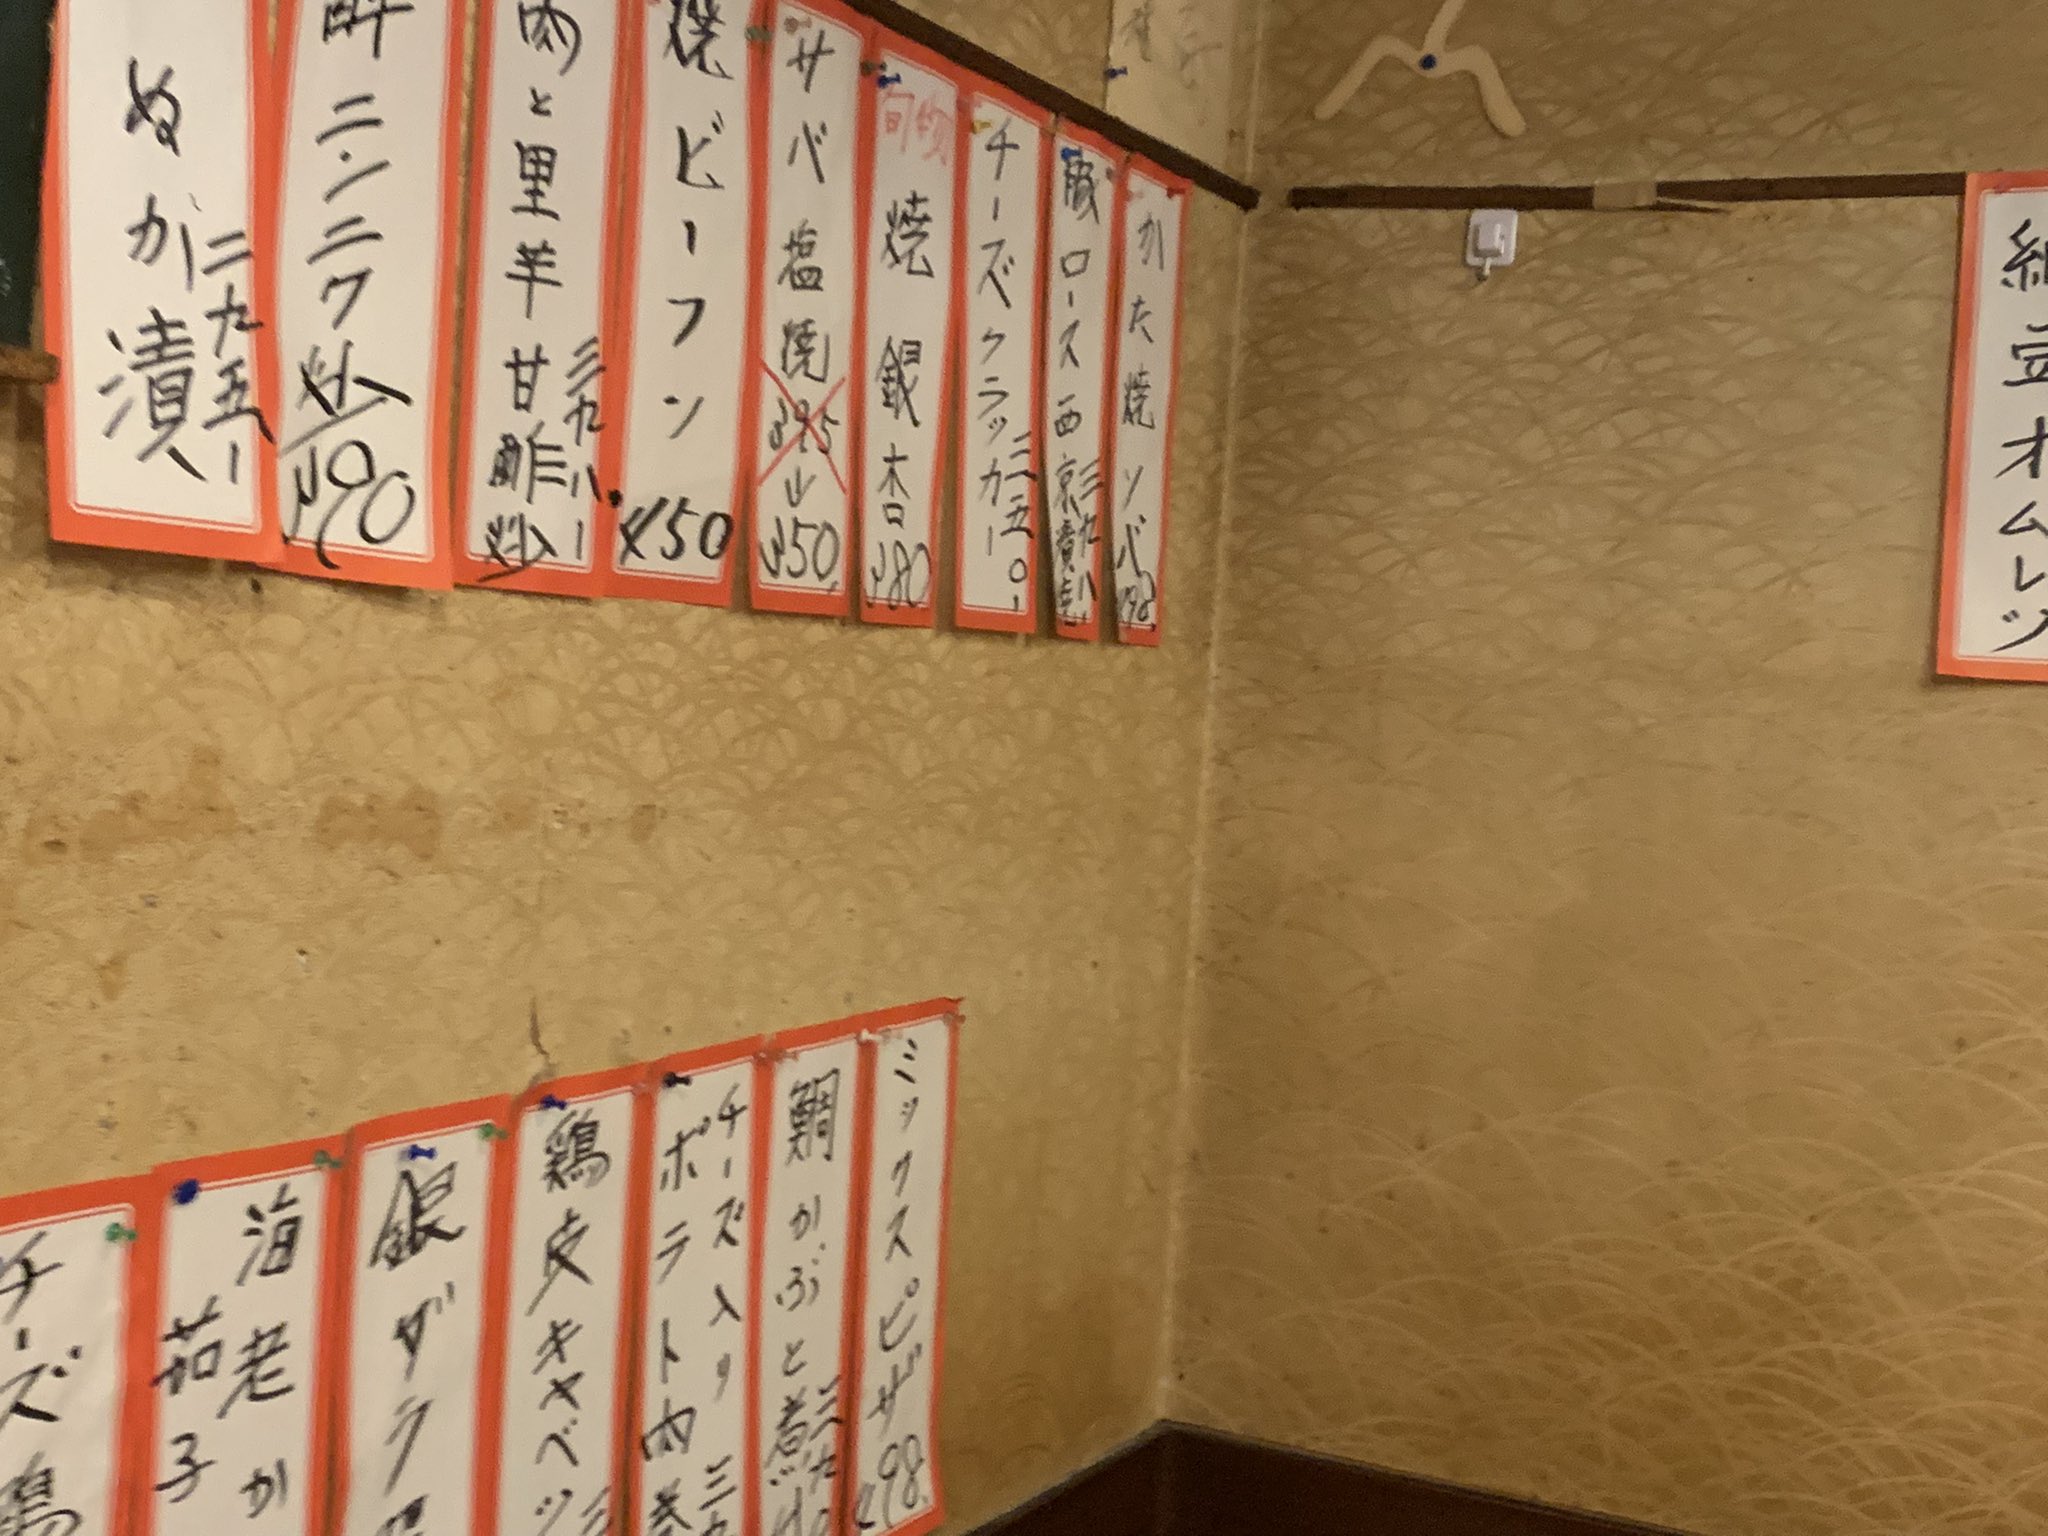 かた焼ソバ 498
豚ロース西京漬 三九八
チーズクラッカー 二五〇ー
旬物 焼銀杏 380
サバ塩焼 395 → 350
焼ビーフン 450
肉と里芋甘酢炒 三九八ー
ニンニク炒 390
ぬか漬 二九五ー
オムレツ
ミックスピザ 498
鯛かぶと煮 三九
チーズ入り
ポテト肉巻 三九
鶏皮キャベツ
銀ザラ
海老か
茄子
チーズ